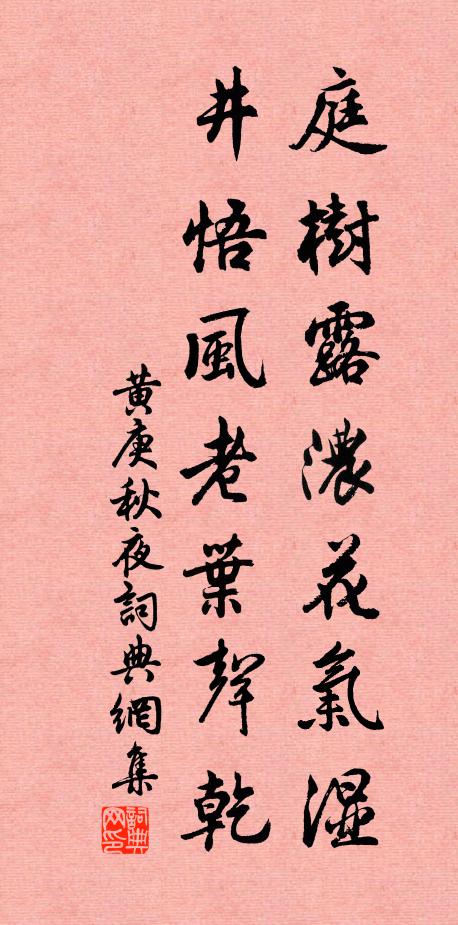 庭樹露濃花氣濕
井悟風老葉聲乾
黃庚秋夜詞典網集
詞典网印